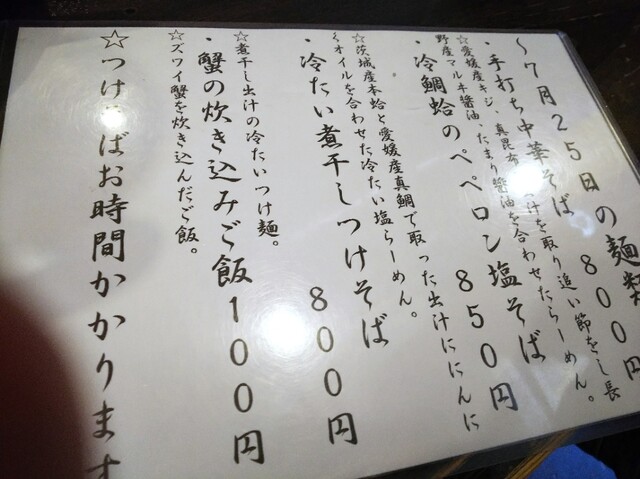 ～7月25日の麺料
・手打ち中華そば 800円
☆愛媛産キジ、真昆布 汁を取り追い節をし長
野産マルキ醤油、たまり醤油を合わせたらーめん。
・冷鯛蛤のペペロン塩そば 850円
☆茨城産本蛤と愛媛産真鯛で取った出汁ににんに
くオイルを合わせた冷たい塩らーめん。
・冷たい煮干しつけそば 800円
☆煮干し出汁の冷たいつけ麺。
・蟹の炊き込みご飯 100円
☆ズワイ蟹を炊き込んだご飯。
☆つけそばお時間かかります